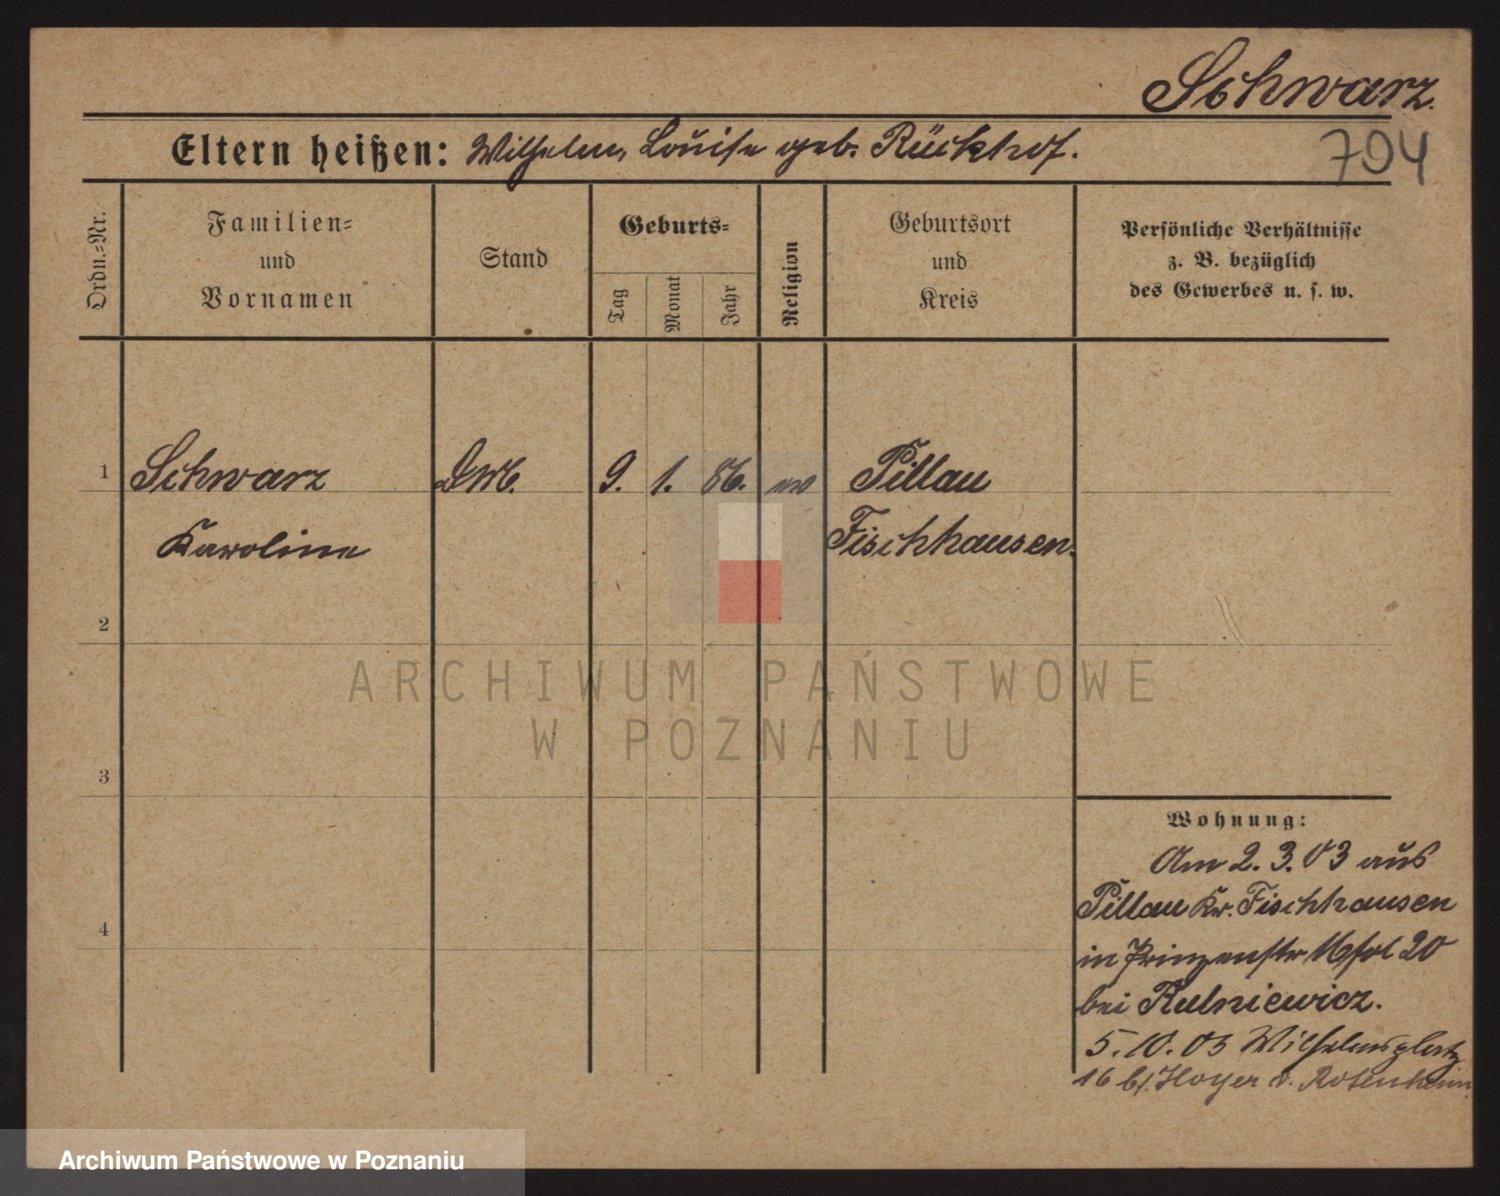 Schwarz.
704
Eltern heißen: Wilhelm, Louise geb. Rückhof.
Ordn.-Nr.
Familien-
und
Vornamen
Stand
Geburts-
Tag
Monat
Jahr
Religion
Geburtsort
und
Kreis
Persönliche Verhältnisse
z. B. bezüglich
des Gewerbes u. s. w.
1 Schwarz 9. 1. 86. ev Pillau
Karoline Fischhausen.
2
ARCHIWUM PAŃSTWOWE
W POZNANIU
3
Wohnung:
Am 2.3.03 aus
Pillau Kr. Fischhausen
4
in Prinzenstr 20
bei
5.10.03 Wilhelmsplatz
16 b/. Hoyer v. Rotenheim
Archiwum Państwowe w Poznaniu